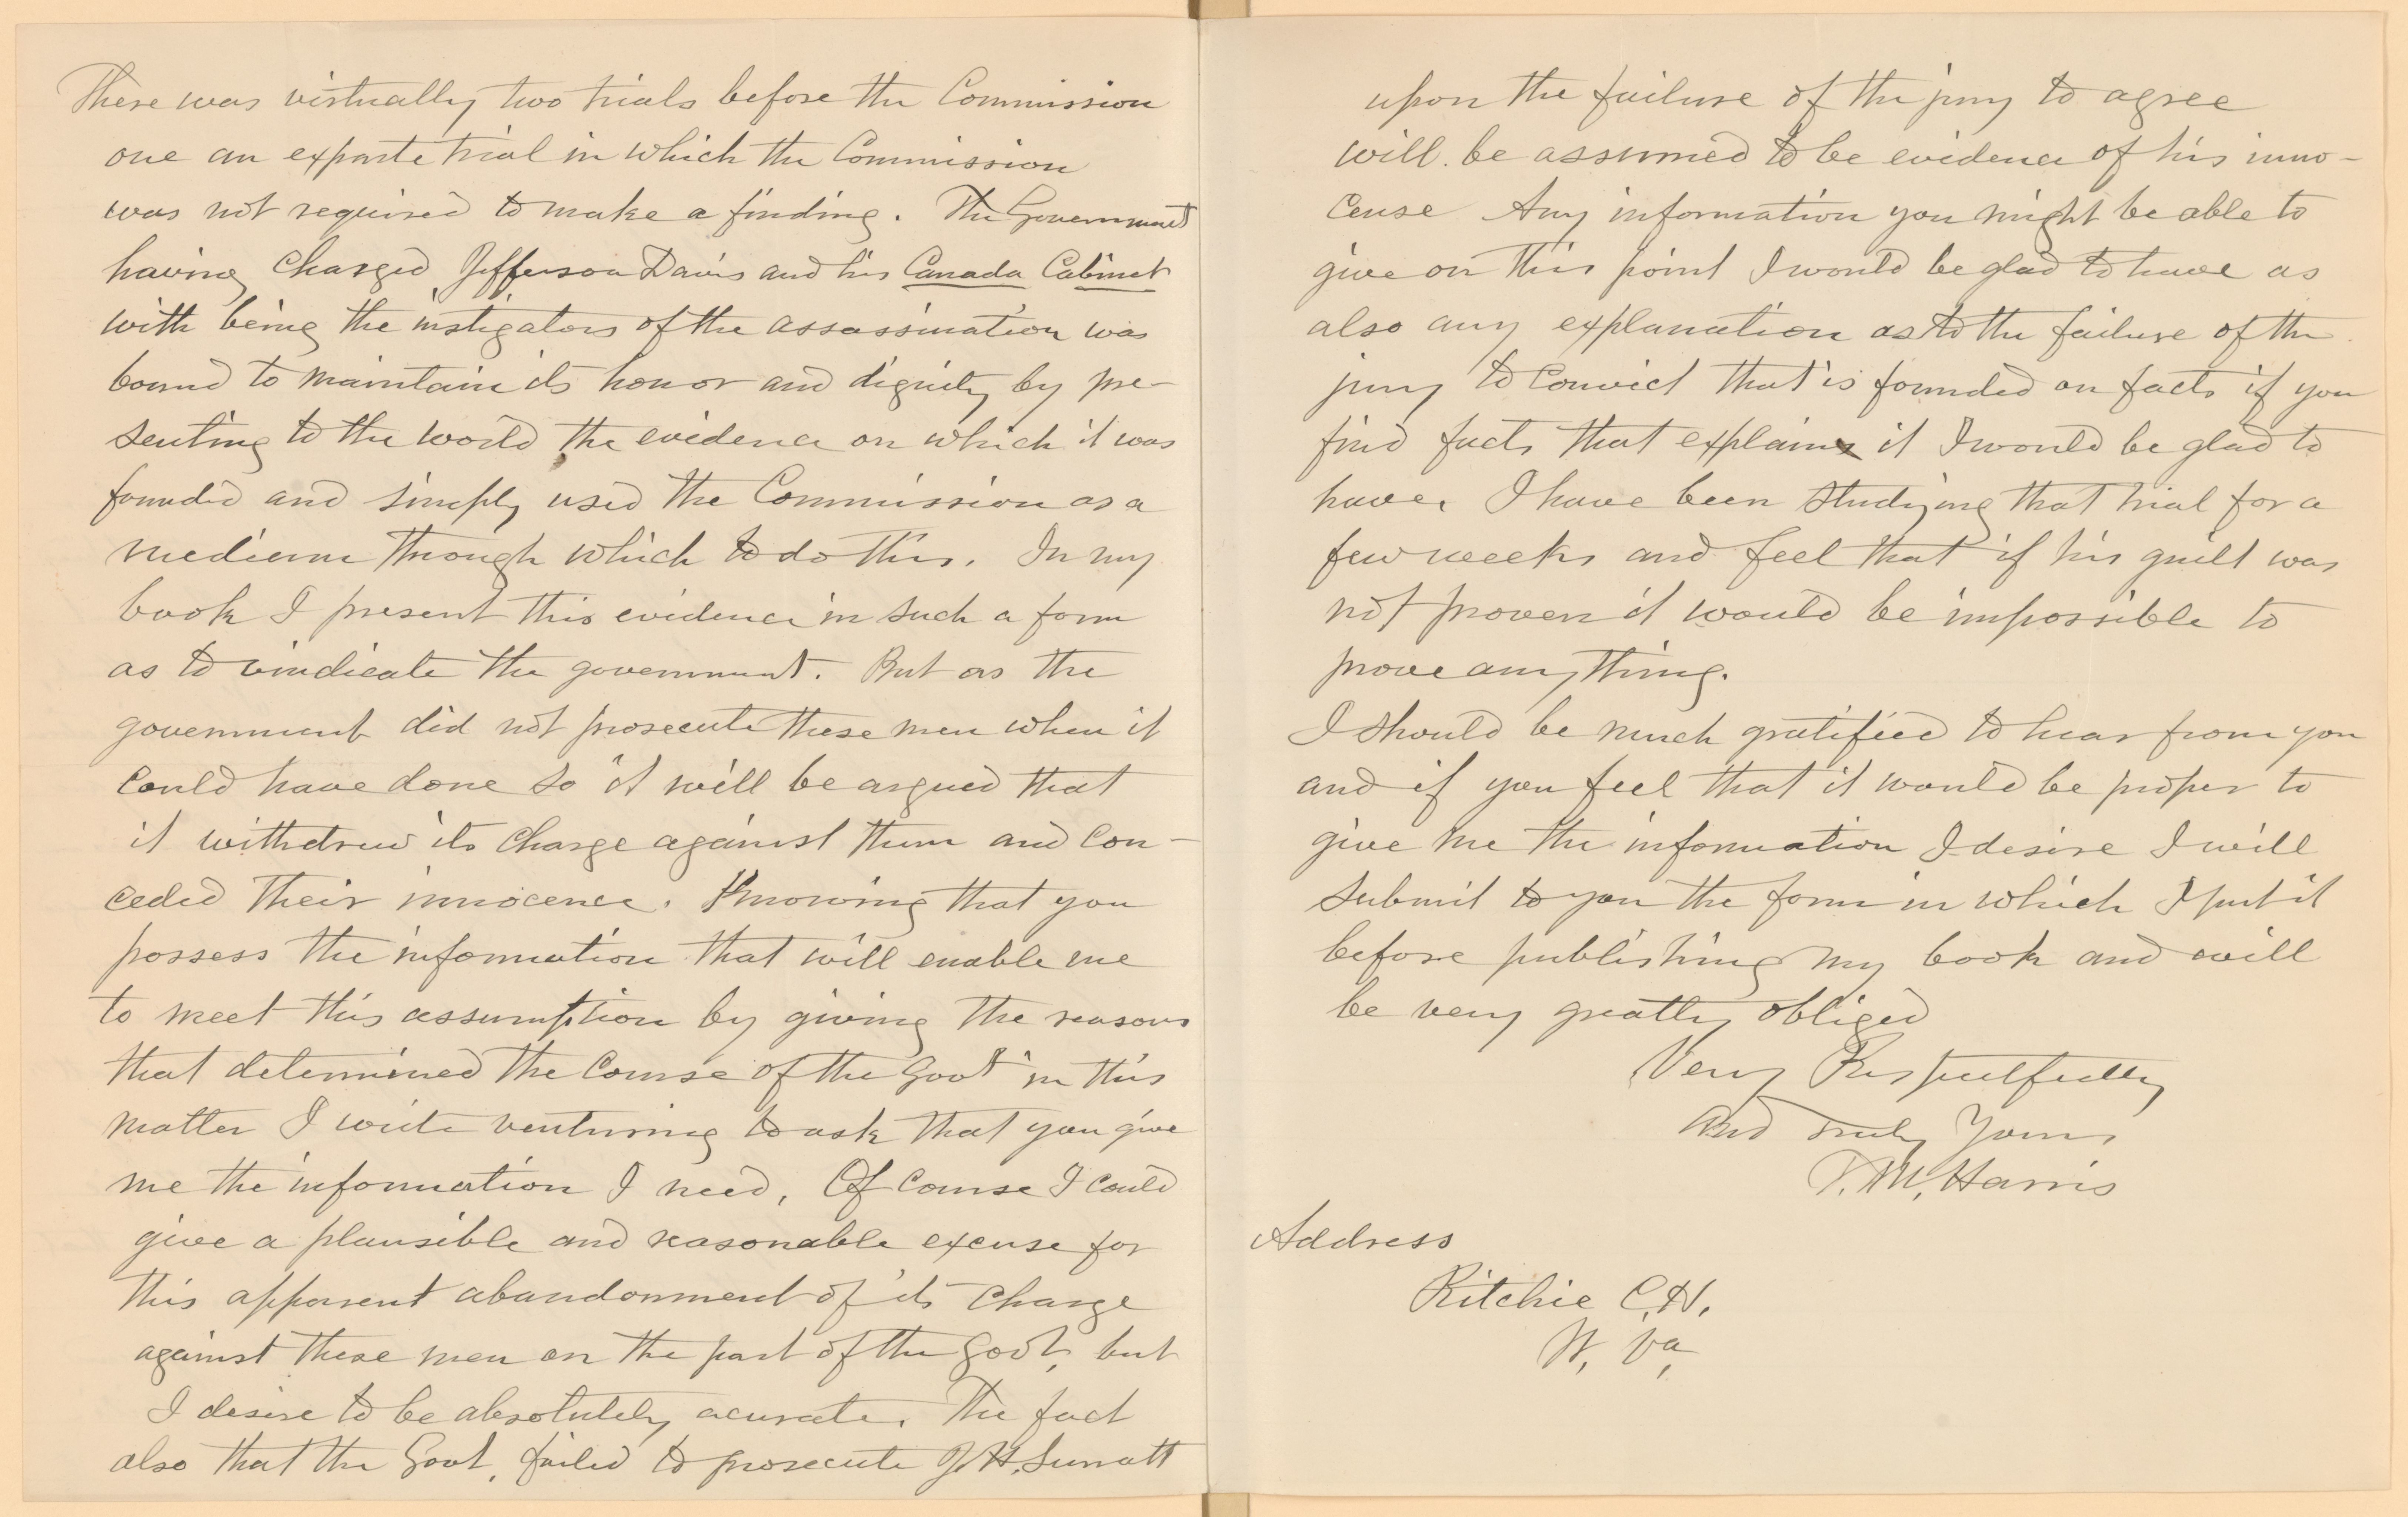 There was virtually two trials before the Commission
one an exparte trial in which the Commission
was not required to make a finding. The Government
having charged Jefferson Davis and his Canada Cabinet
with being the instigators of the assassination was
bound to maintain its honor and dignity by pre-
senting to the world the evidence on which it was
founded and simply used the Commission as a
medium through which to do this. In my
book I present this evidence in such a form
as to vindicate the government. But as the
government did not prosecute these men when it
could have done so it will be argued that
it withdrew its charge against them and con-
ceded their innocence. Knowing that you
possess the information that will enable me
to meet this assumption by giving the reasons
that determined the course of the Govt in this
matter I write venturing to ask that you give
me the information I need, Of course I could
give a plausible and reasonable excuse for
this apparent abandonment of its charge
against these men on the part of the Govt, but
I desire to be absolutely acurate. The fact
also that the Govt. failed to prosecute J. H. Surratt
upon the failure of the jury to agree
will be assumed to be evidence of his inno-
cense Any information you might be able to
give on this point I would be glad to have as
also any explanation as to the failure of the
jury to convict that is founded on facts if you
find facts that explain it I would be glad to
have. I have been studying that trial for a
few weeks and feel that if his guilt was
not proven it would be impossible to
prove any thing.
I should be much gratified to hear from you
and if you feel that it would be proper to
give me the information I desire I will
submit to you the form in which I put it
before publishing my book and will
be very greatly obliged
Very Respectfully
and truly Yours
T. M. Harris
Address
Ritchie C.H.
W. Va,